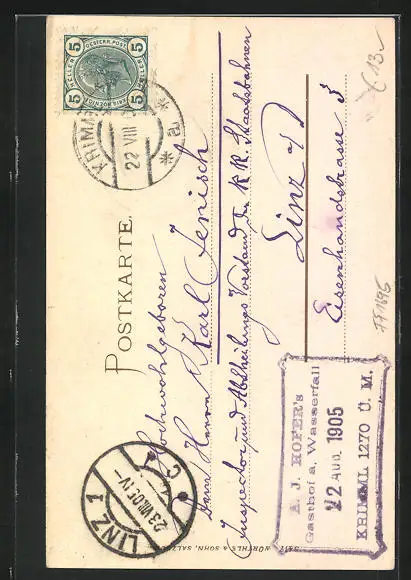 5 HELLER 5
OESTERR. POST
5 5
KRIMML
22 VIII
* a *
POSTKARTE.
Hochwohlgeboren
Herrn Karl Jenisch
Inspector und Abtheilungs Vorstand d. K. K. Staatsbahnen
Linz a/D
Eisenhandstrasse 3
LINZ 1
23.VIII.05.IV–
C
A. J. HOFER's
Gasthof a. Wasserfall
22 AUG. 1905
KRIMML 1270 Ü. M.
WÜRTHLE & SOHN, SALZBURG